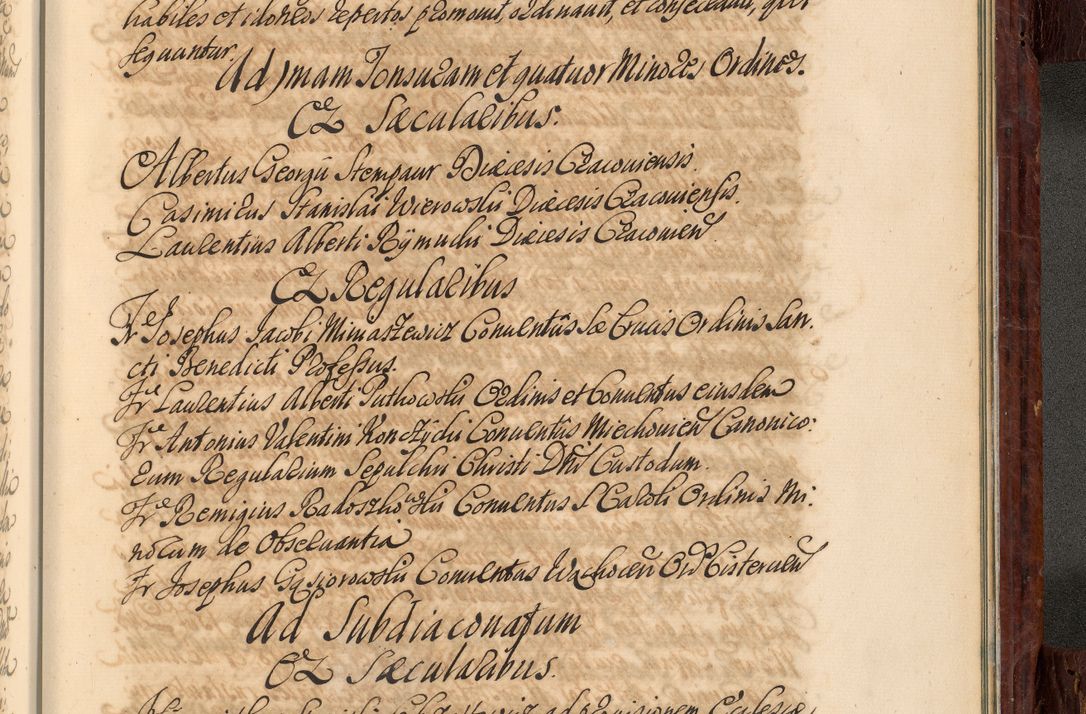 habiles et idoneos repertos promouit, ordinauit, et consecrauit, qui
sequuntur.
Ad 1mam Tonsuram et quatuor Minores Ordines.
Ex Sæcularibus.
Albertus Georgii Stempaur Diæcesis Cracouiensis.
Casimirus Stanislai Wierowski Diæcesis Cracouiensis.
Laurentius Alberti Rÿmucki Diæcesis Cracouien
Ex Regularibus
Fr Josephus Jacobi Mimaszewicz Conuentûs Sæ Crucis Ordinis San-
cti Benedicti Professus.
Fr Laurentius Alberti Puthowski Ordinis et Conuentus eiusdem
Fr Antonius Valentini Konczÿcki Conuentûs Miechouien Canonico-
rum Regularium Sepulchri Christi Dni Custodum.
Fr Remigius Radoszkowski Conuentus S Caroli Ordinis Mi-
norum de Obseruantia
Fr Josephus Gąsiorowski Conuentus Wąchocen Ord Cistercien
Ad Subdiaconatum
Ex Sæcularibus.
ad prouisionem Ecclesiæ